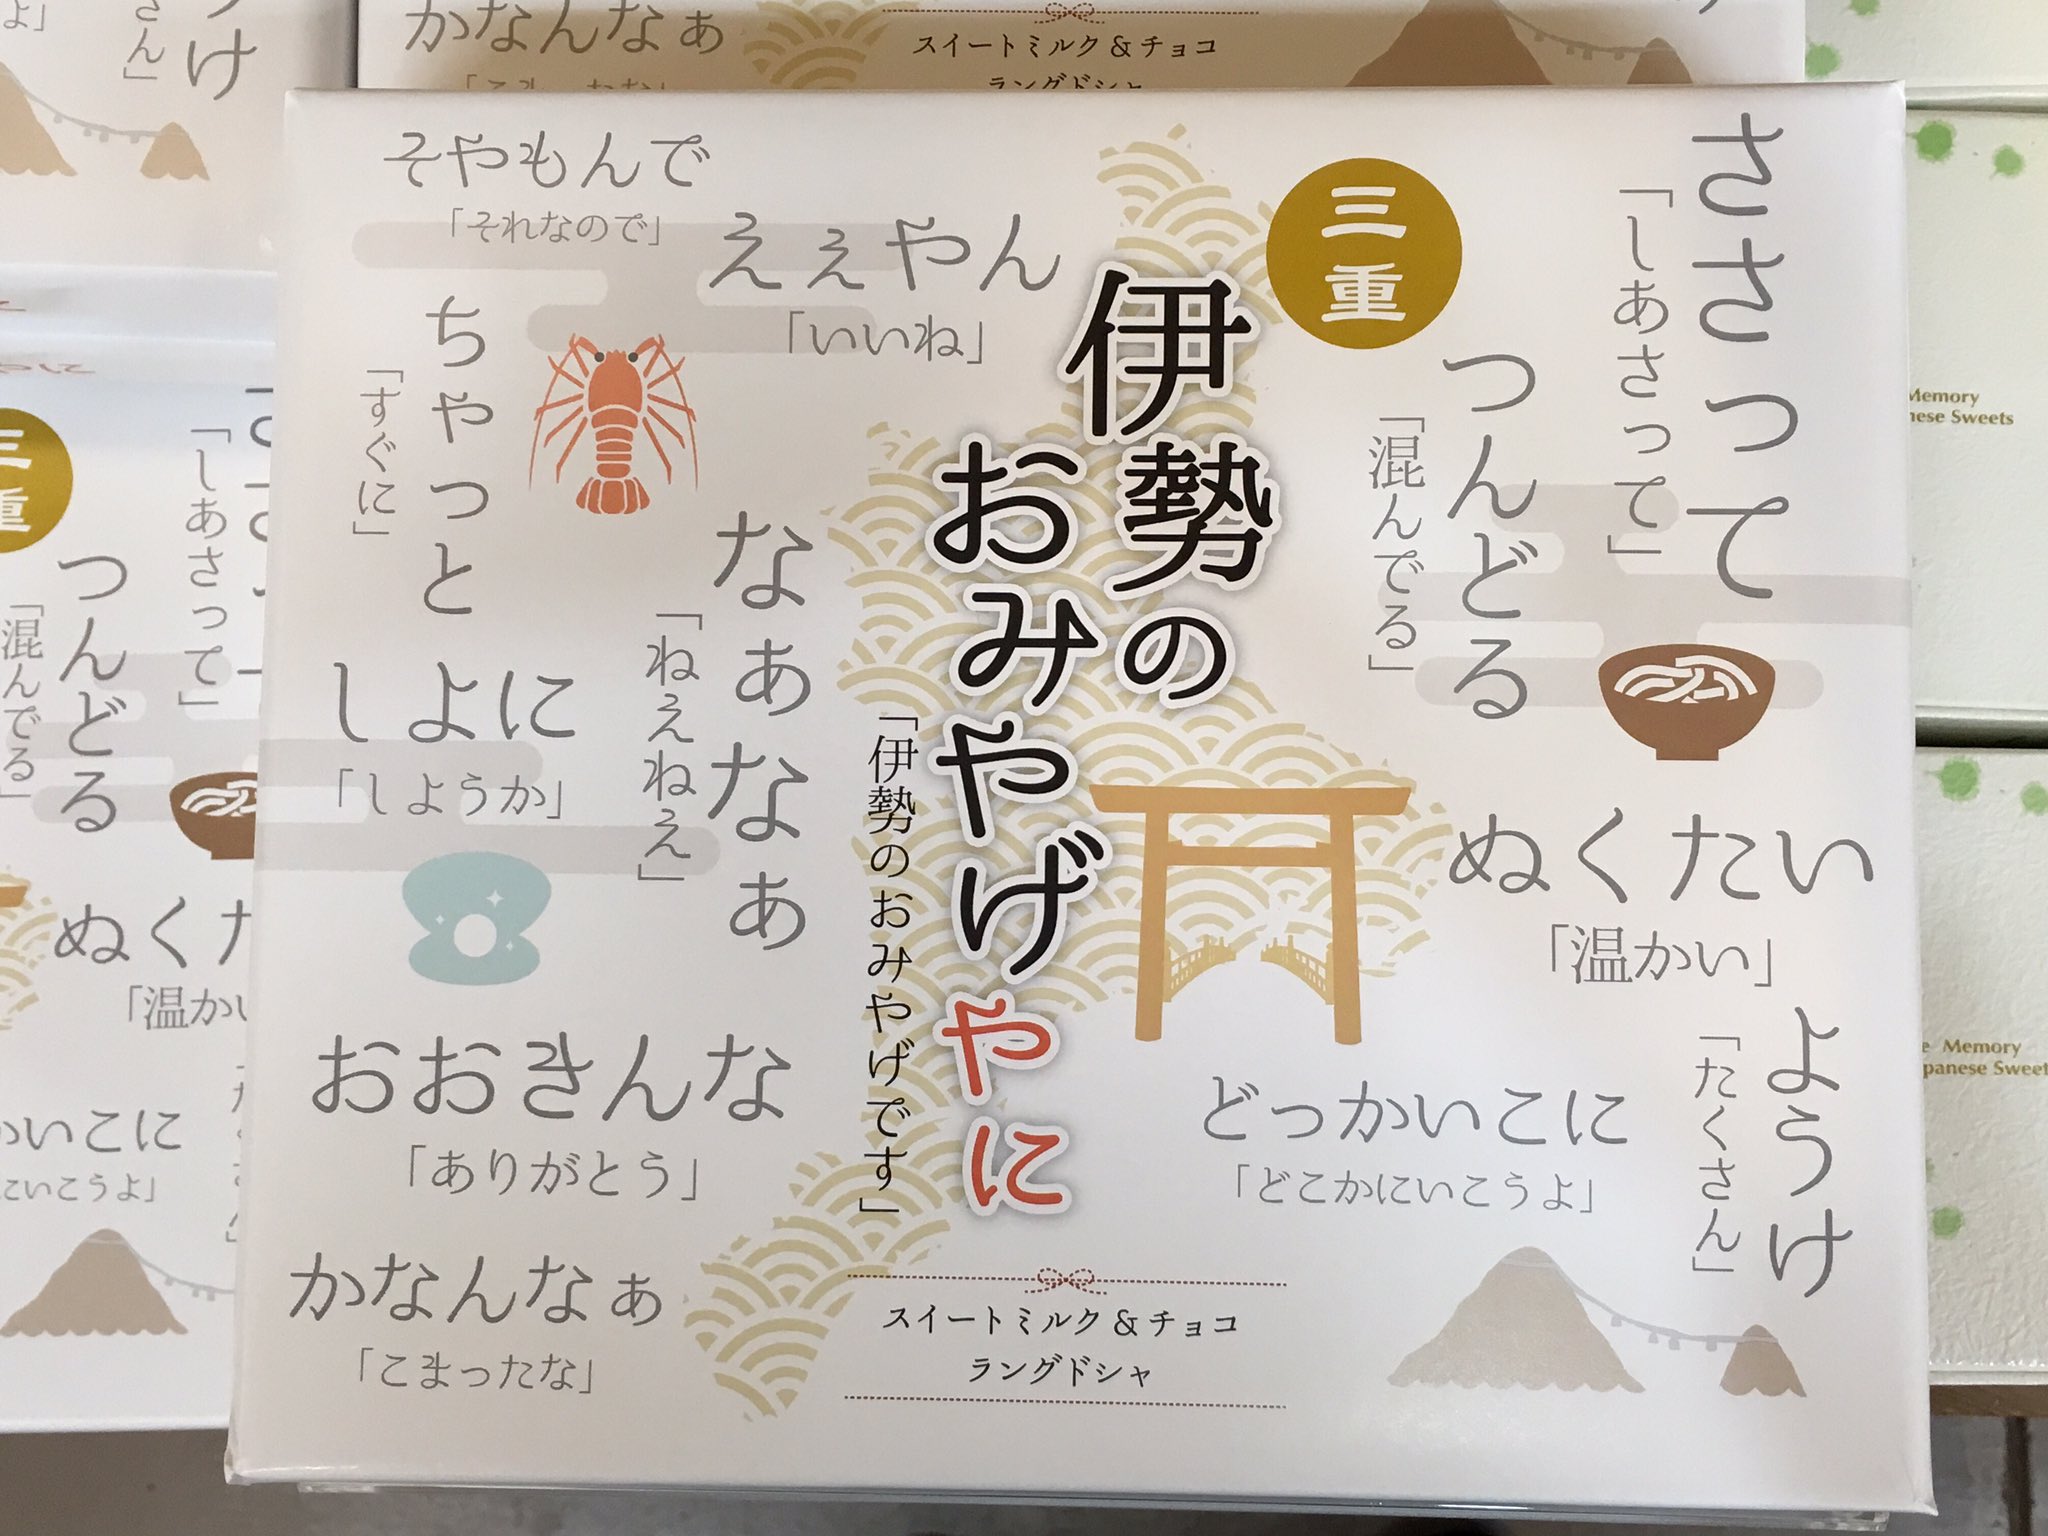 かなんなぁ
スイートミルク&チョコ
ラングドシャ
三重
伊勢の
おみやげやに
「伊勢のおみやげです」
ささって
「しあさって」
つんどる
「混んでる」
そやもんで
「それなので」
ええやん
「いいね」
ちゃっと
「すぐに」
なぁなぁ
「ねえねえ」
しよに
「しようか」
ぬくたい
「温かい」
おおきんな
「ありがとう」
どっかいこに
「どこかにいこうよ」
ようけ
「たくさん」
かなんなぁ
「こまったな」
スイートミルク&チョコ
ラングドシャ
「しあさって」
つんどる
「混んでる」
Memory
Memory